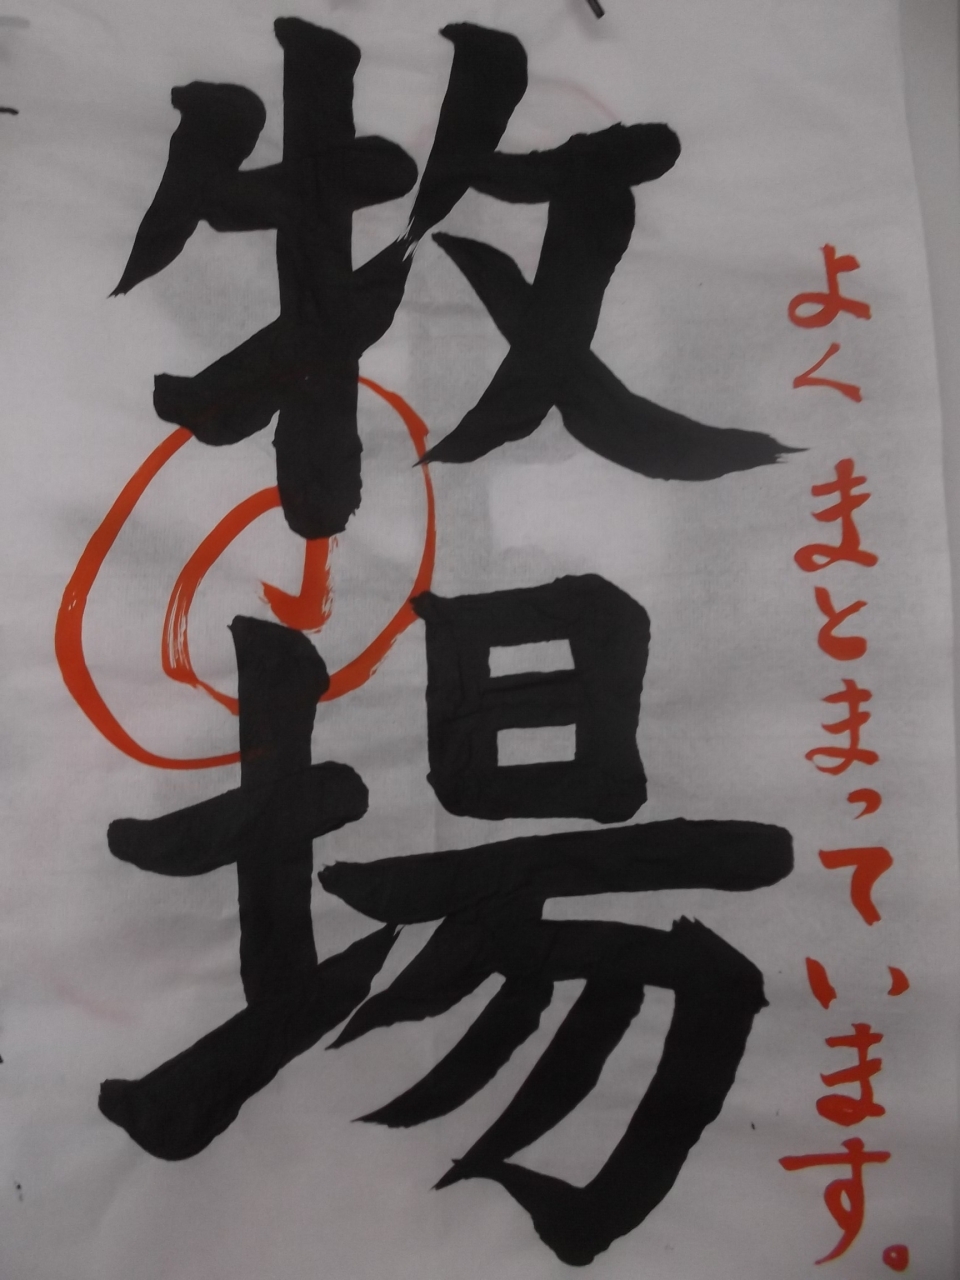 牧場
よくまとまっています。